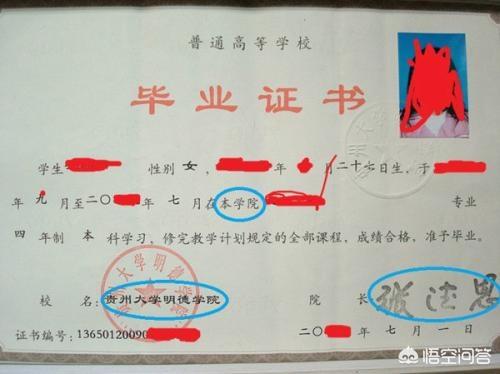 普通高等学校
毕业证书
学生 性别 女, 年 月二十七日生,于
年 九 月至二〇 年 七 月在本学院 专业
四 年制 本 科学习,修完教学计划规定的全部课程,成绩合格,准予毕业。
校 名:贵州大学明德学院 院 长:
证书编号:13650120090 二〇 年 七 月 一 日
贵州大学明德学院
悟空问答